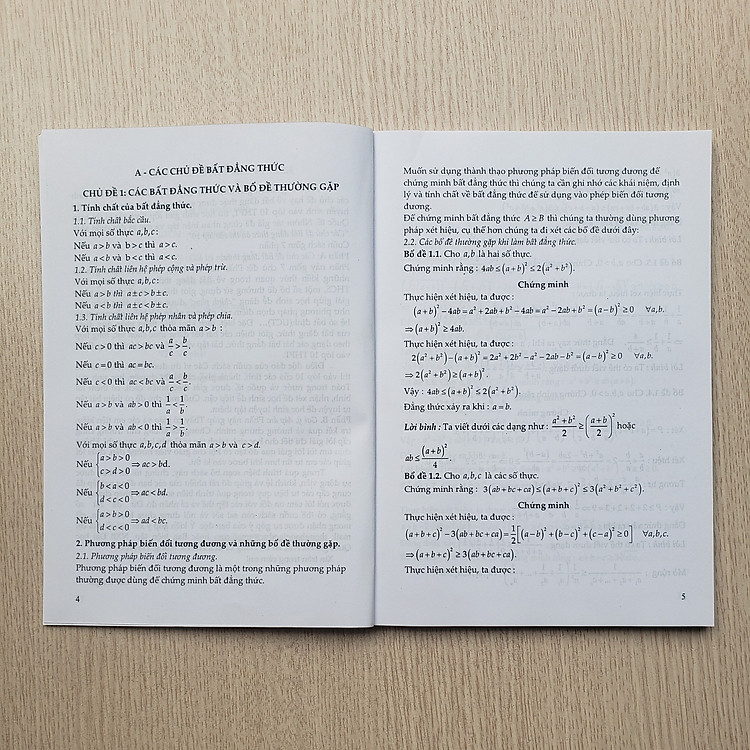 A - CÁC CHỦ ĐỀ BẤT ĐẲNG THỨC
CHỦ ĐỀ 1: CÁC BẤT ĐẲNG THỨC VÀ BỔ ĐỀ THƯỜNG GẶP
1. Tính chất của bất đẳng thức.
1.1. Tính chất bắc cầu.
Với mọi số thực a,b,c :
Nếu a > b và b > c thì a > c.
Nếu a < b và b < c thì a < c.
1.2. Tính chất liên hệ phép cộng và phép trừ.
Với mọi số thực a,b,c :
Nếu a > b thì a ± c > b ± c.
Nếu a < b thì a ± c < b ± c.
1.3. Tính chất liên hệ phép nhân và phép chia.
Với mọi số thực a,b,c thỏa mãn a > b :
Nếu c > 0 thì ac > bc và a/c > b/c.
Nếu c = 0 thì ac = bc.
Nếu c < 0 thì ac < bc và a/c < b/c.
Nếu a > b và ab > 0 thì 1/a < 1/b.
Nếu a > b và ab < 0 thì 1/a > 1/b.
Với mọi số thực a,b,c,d thỏa mãn a > b và c > d.
Nếu {a > b > 0; c > d > 0 ⇒ ac > bd.
Nếu {b < a < 0; d < c < 0 ⇒ ac < bd.
Nếu {a > b > 0; d < c < 0 ⇒ ad < bc.
2. Phương pháp biến đổi tương đương và những bổ đề thường gặp.
2.1. Phương pháp biến đổi tương đương.
Phương pháp biến đổi tương đương là một trong những phương pháp
thường được dùng để chứng minh bất đẳng thức.
4
Muốn sử dụng thành thạo phương pháp biến đổi tương đương để
chứng minh bất đẳng thức thì chúng ta cần ghi nhớ các khái niệm, định
lý và tính chất về bất đẳng thức để sử dụng vào phép biến đổi tương
đương.
Để chứng minh bất đẳng thức A ≥ B thì chúng ta thường dùng phương
pháp xét hiệu, cụ thể hơn chúng ta đi xét các bổ đề dưới đây:
2.2. Các bổ đề thường gặp khi làm bất đẳng thức.
Bổ đề 1.1. Cho a,b là hai số thực.
Chứng minh rằng : 4ab ≤ (a+b)² ≤ 2(a²+b²).
Chứng minh
Thực hiện xét hiệu, ta được :
(a+b)² − 4ab = a² + 2ab + b² − 4ab = a² − 2ab + b² = (a−b)² ≥ 0 ∀a,b.
⇒ (a+b)² ≥ 4ab.
Thực hiện xét hiệu, ta được :
2(a²+b²) − (a+b)² = 2a² + 2b² − a² − 2ab − b² = (a−b)² ≥ 0 ∀a,b.
⇒ 2(a²+b²) ≥ (a+b)².
Vậy : 4ab ≤ (a+b)² ≤ 2(a²+b²).
Đẳng thức xảy ra khi : a = b.
Lời bình : Ta viết dưới các dạng như : (a²+b²)/2 ≥ ((a+b)/2)² hoặc
ab ≤ (a+b)²/4.
Bổ đề 1.2. Cho a,b,c là các số thực.
Chứng minh rằng : 3(ab+bc+ca) ≤ (a+b+c)² ≤ 3(a²+b²+c²).
Chứng minh
Thực hiện xét hiệu, ta được :
(a+b+c)² − 3(ab+bc+ca) = 1/2[(a−b)² + (b−c)² + (c−a)² ≥ 0] ∀a,b,c.
⇒ (a+b+c)² ≥ 3(ab+bc+ca).
Thực hiện xét hiệu, ta được :
5